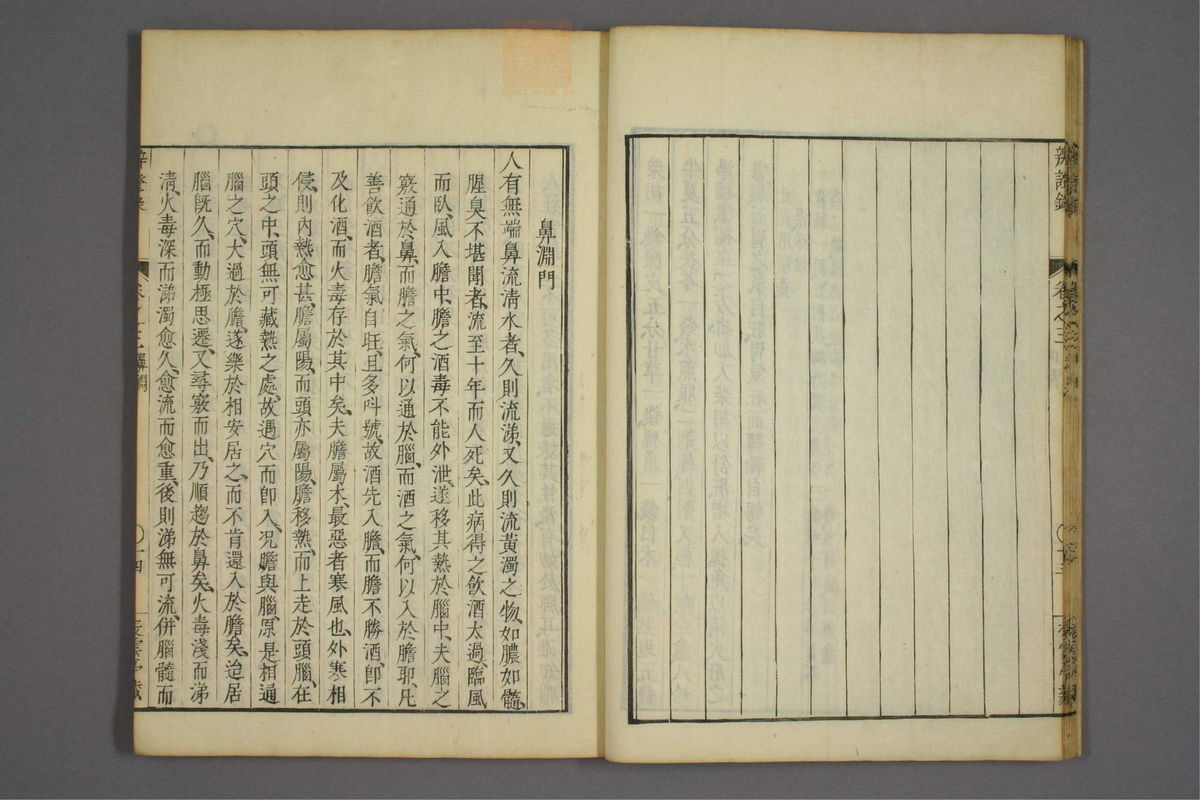 辨證錄
卷之三
鼻淵門
人有無端鼻流清水者、久則流涕、又久則流黃濁之物、如膿如髓、
腥臭不堪聞者、流至十年而人死矣、此病得之飲酒太過、臨風
而臥、風入膽中、膽之酒毒不能外泄、遂移其熱於腦中、夫腦之
竅通於鼻、而膽之氣、何以通於腦、而酒之氣、何以入於膽耶、凡
善飲酒者、膽氣自旺、且多呌號、故酒先入膽、而膽不勝酒、卽不
及化酒、而火毒存於其中矣、夫膽屬木、最惡者寒風也、外寒相
侵、則內熱愈甚、膽屬陽、而頭亦屬陽、膽移熱、而上走於頭腦、在
頭之中、頭無可藏熱之處、故遇穴而卽入、况膽與腦、原是相通
腦之穴、大過於膽、遂樂於相安居之、而不肯還入於膽矣、迨居
腦旣久、而動極思遷、又尋竅而出、乃順趨於鼻矣、火毒淺而涕
淸、火毒深而涕濁、愈久、愈流而愈重、後則涕無可流、倂腦髓而